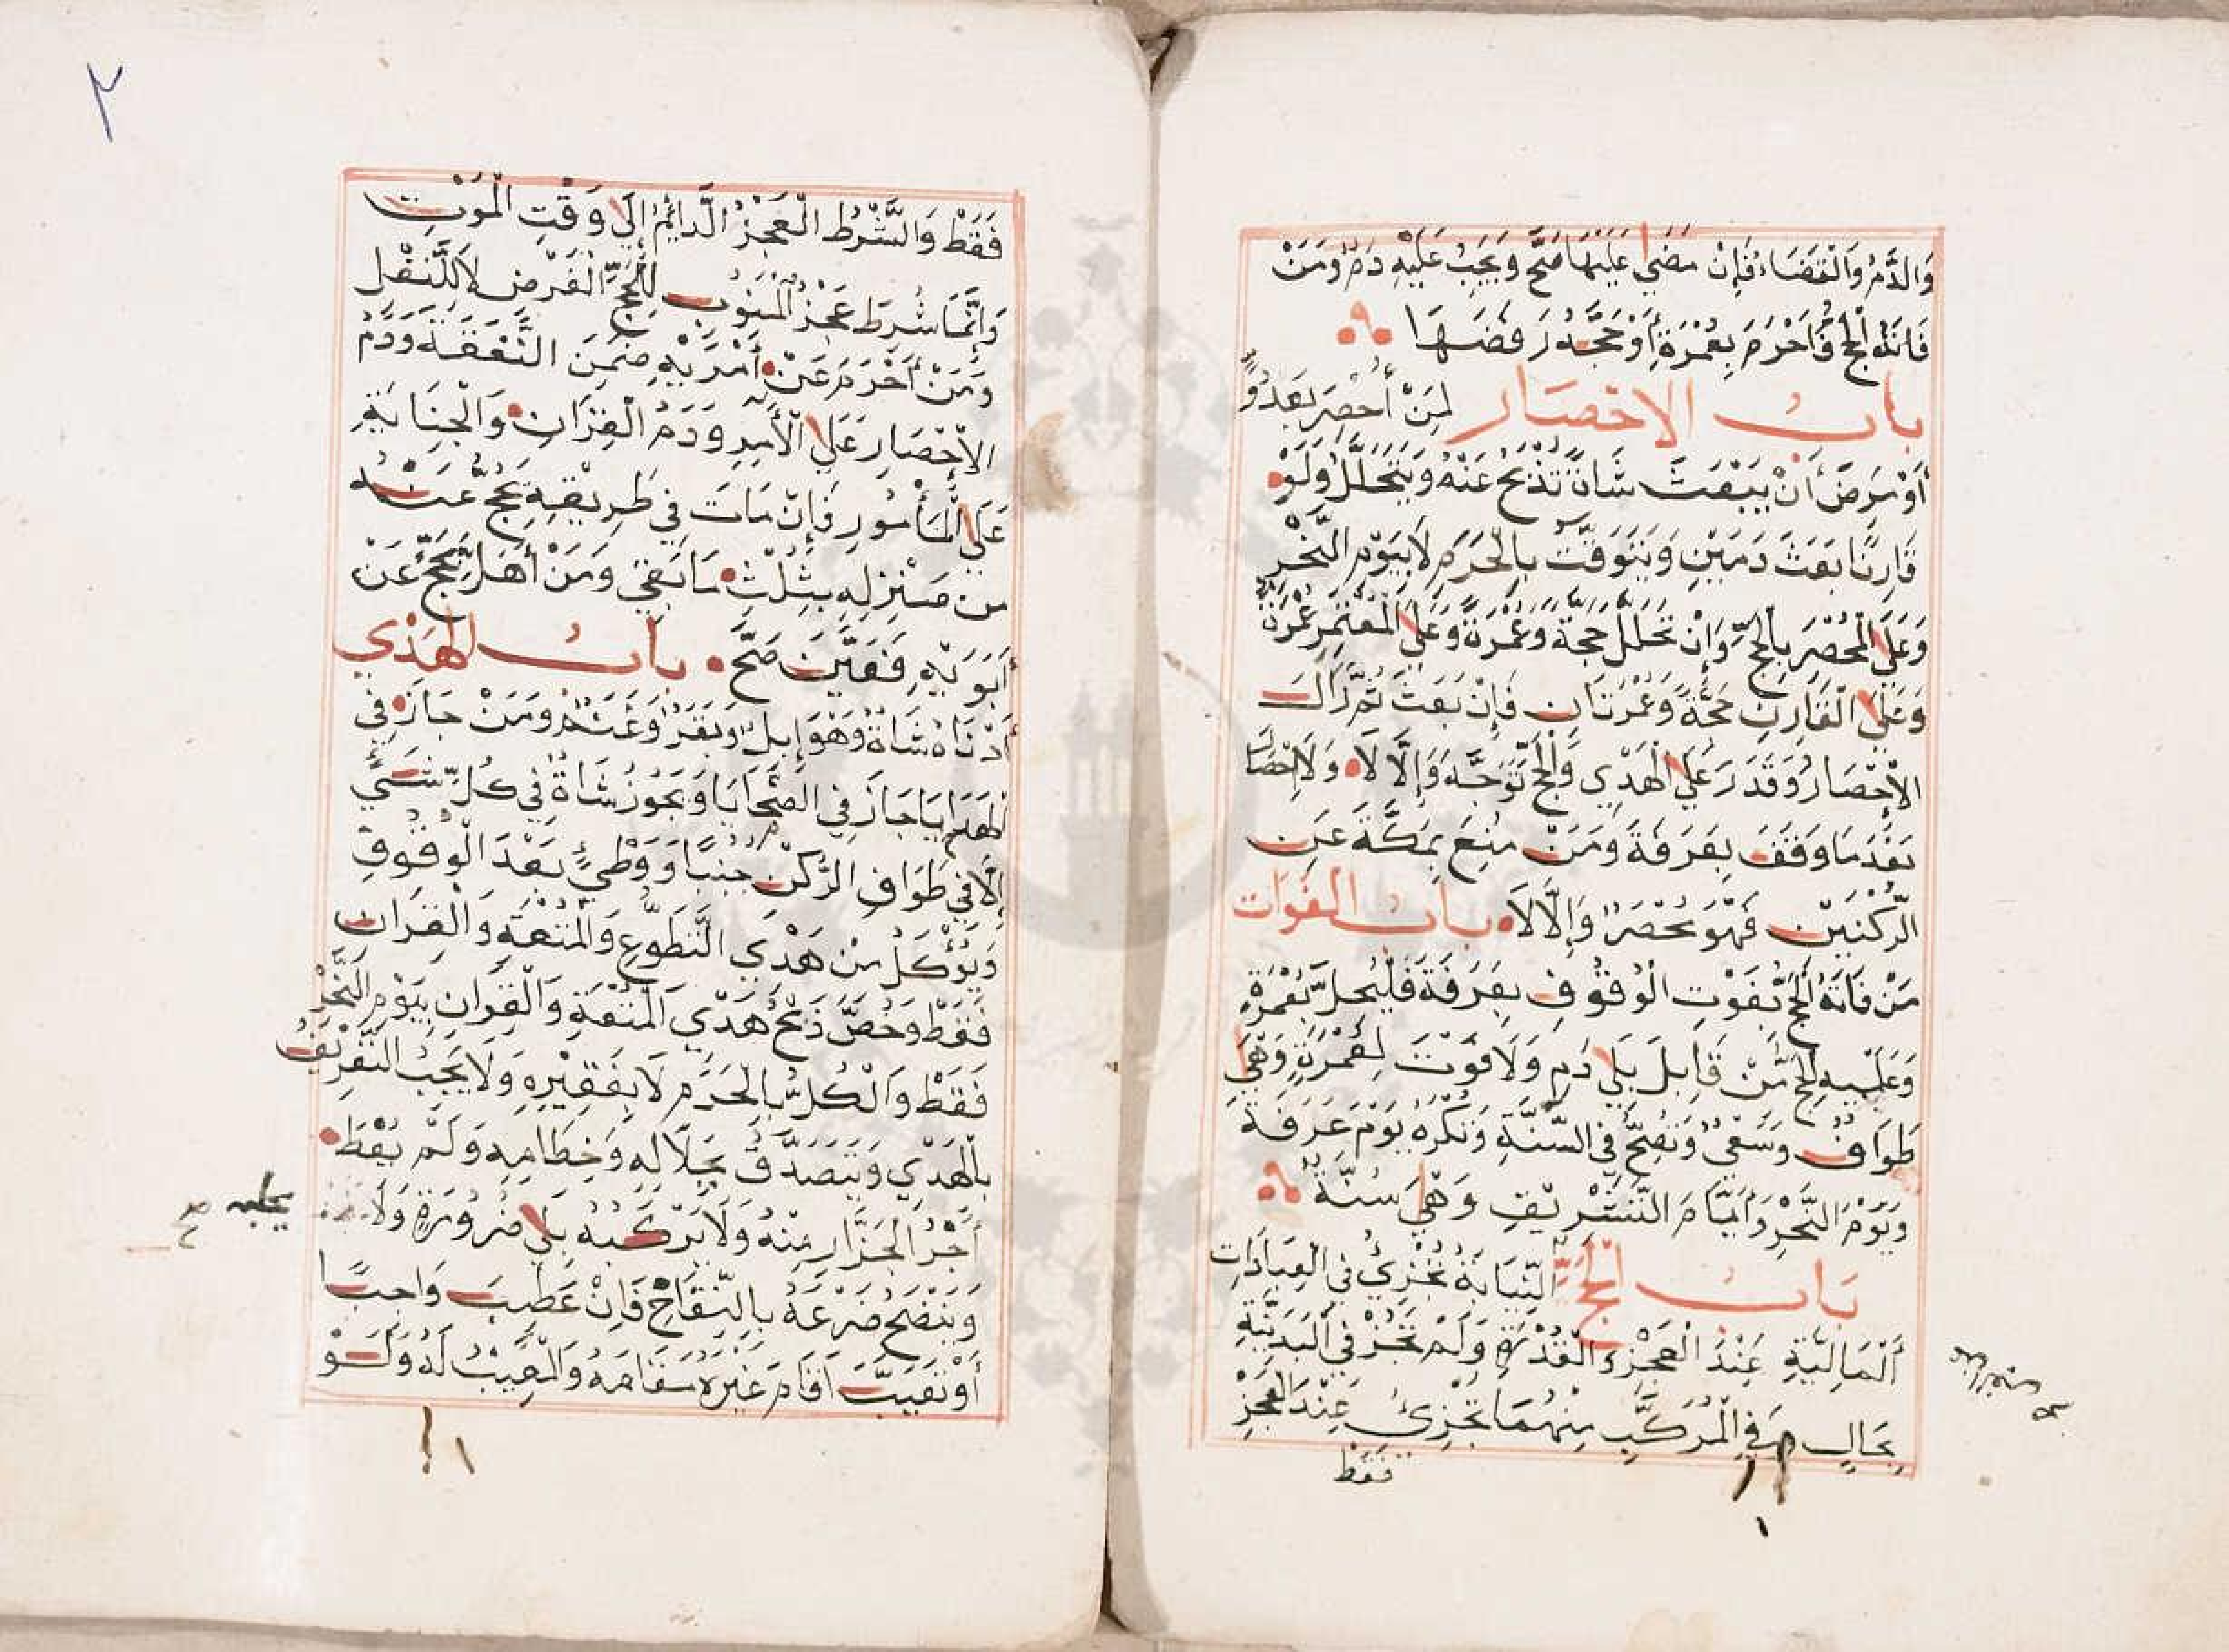 وَالدَّمُ وَالْقَضَاءُ فَإِنْ مَضَى عَلَيْهَا صَحَّ وَيَجِبُ عَلَيْهِ دَمٌ وَمَنْ
فَاتَهُ الْحَجُّ فَأَحْرَمَ بِعُمْرَةٍ أَوْ حَجَّةٍ رَفَضَهَا
باب الاحصار لِمَنْ أُحْصِرَ بِعَدُوٍّ
أَوْ مَرَضٍ أَنْ يَبْعَثَ شَاةً تُذْبَحُ عَنْهُ وَيَتَحَلَّلُ وَلَوْ
قَارِنًا بَعَثَ دَمَيْنِ وَيَتَوَقَّتُ بِالْحَرَمِ لَا بِيَوْمِ النَّحْرِ
وَعَلَى الْمُحْصَرِ بِالْحَجِّ وَإِنْ تَحَلَّلَ حَجَّةٌ وَعُمْرَةٌ وَعَلَى الْمُعْتَمِرِ عُمْرَةٌ
وَعَلَى الْقَارِنِ حَجَّةٌ وَعُمْرَتَانِ فَإِنْ بَعَثَ ثُمَّ زَالَ
الْإِحْصَارُ وَقَدَرَ عَلَى الْهَدْيِ وَالْحَجِّ تَوَجَّهَ وَإِلَّا لَا وَلَا إِحْصَارَ
بَعْدَ مَا وَقَفَ بِعَرَفَةَ وَمَنْ مُنِعَ بِمَكَّةَ عَنِ
الرُّكْنَيْنِ فَهُوَ مُحْصَرٌ وَإِلَّا لَا باب الفوات
مَنْ فَاتَهُ الْحَجُّ بِفَوْتِ الْوُقُوفِ بِعَرَفَةَ فَلْيُحِلَّ بِعُمْرَةٍ
وَعَلَيْهِ الْحَجُّ مِنْ قَابِلَ بِلَى دَمٍ وَلَا فَوْتَ لِعُمْرَةٍ وَهِيَ
طَوَافٌ وَسَعْيٌ وَتَصِحُّ فِي السَّنَةِ وَتُكْرَهُ يَوْمَ عَرَفَةَ
وَيَوْمَ النَّحْرِ وَأَيَّامَ التَّشْرِيقِ وَهِيَ سُنَّةٌ
بَاب الْحَجِّ النِّيَابَةُ تُجْزِئُ فِي الْعِبَادَاتِ
الْمَالِيَّةِ عِنْدَ الْعَجْزِ وَالْقُدْرَةِ وَلَمْ تَجُزْ فِي الْبَدَنِيَّةِ
بِحَالٍ وَفِي الْمُرَكَّبِ مِنْهُمَا تُجْزِئُ عِنْدَ الْعَجْزِ
فقط
٢
فَقَطْ وَالشَّرْطُ الْعَجْزُ الدَّائِمُ إِلَى وَقْتِ الْمَوْتِ
وَإِنَّمَا شُرِطَ عَجْزُ الْمَنُوبِ لِلْحَجِّ الْفَرْضِ لَا لِلنَّفْلِ
وَمَنْ أَحْرَمَ عَنْ أَمْرَيْهِ ضَمِنَ النَّفَقَةَ وَدَمُ
الْإِحْصَارِ عَلَى الْأَمِرِ وَدَمُ الْقِرَانِ وَالْجِنَايَةِ
عَلَى الْمَأْمُورِ فَإِنْ مَاتَ فِي طَرِيقِهِ يُحَجُّ عَنْهُ
مِنْ مَنْزِلِهِ بِثُلُثِ مَا بَقِيَ وَمَنْ أَهَلَّ بِحَجٍّ عَنْ
أَبَوَيْهِ فَعَيَّنَ صَحَّ بَابُ الْهَدْيِ
أَدْنَاهُ شَاةٌ وَهُوَ إِبِلٌ وَبَقَرٌ وَغَنَمٌ وَمَنْ جَازَ فِي
الْهَدَايَا جَازَ فِي الضَّحَايَا وَيَجُوزُ شَاةٌ فِي كُلِّ شَيْءٍ
إِلَّا فِي طَوَافِ الرُّكْنِ جُنُبًا وَوَطْئٍ بَعْدَ الْوُقُوفِ
وَيُؤْكَلُ مِنْ هَدْيِ التَّطَوُّعِ وَالْمُتْعَةِ وَالْقِرَانِ
فَقَطْ وَخُصَّ ذَبْحُ هَدْيِ الْمُتْعَةِ وَالْقِرَانِ بِيَوْمِ النَّحْرِ
فَقَطْ وَالْكُلُّ بِالْحَرَمِ لَا بِفَقِيْرِهِ وَلَا يَجِبُ التَّعْرِيفُ
بِالْهَدْيِ وَيَتَصَدَّقُ بِجِلَالِهِ وَخِطَامِهِ وَلَمْ يُعْطَ
أَجْرُ الْجَزَّارِ مِنْهُ وَلَا يَرْكَبُهُ بِلَى ضَرُورَةٍ وَلَا
يحلبه
وَيَنْضَحُ ضَرْعَهُ بِالنُّقَاخِ فَإِنْ عَطِبَ وَاجِبًا
أَوْ تَعَيَّبَ أَقَامَ غَيْرَهُ مَقَامَهُ وَالْمَعِيْبُ لَهُ وَلَوْ